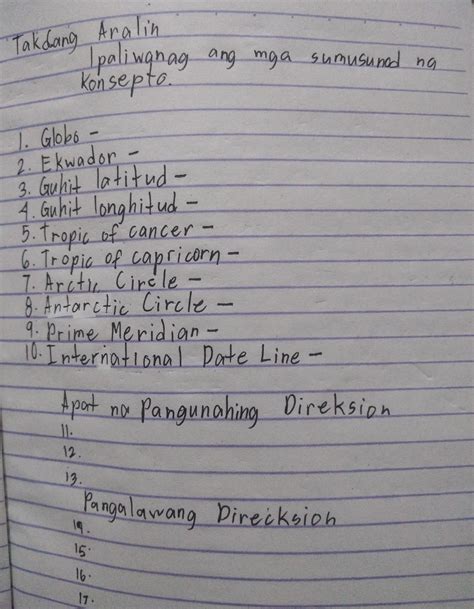 Takdang Aralin
Ipaliwanag ang mga sumusunod na
konsepto.
1. Globo -
2. Ekwador -
3. Guhit latitud -
4. Guhit longhitud -
5. Tropic of cancer -
6. Tropic of capricorn -
7. Arctic Circle -
8. Antarctic Circle -
9. Prime Meridian -
10. International Date Line -
Apat na Pangunahing Direksion
11.
12.
13.
Pangalawang Direcksion
14.
15.
16.
17.